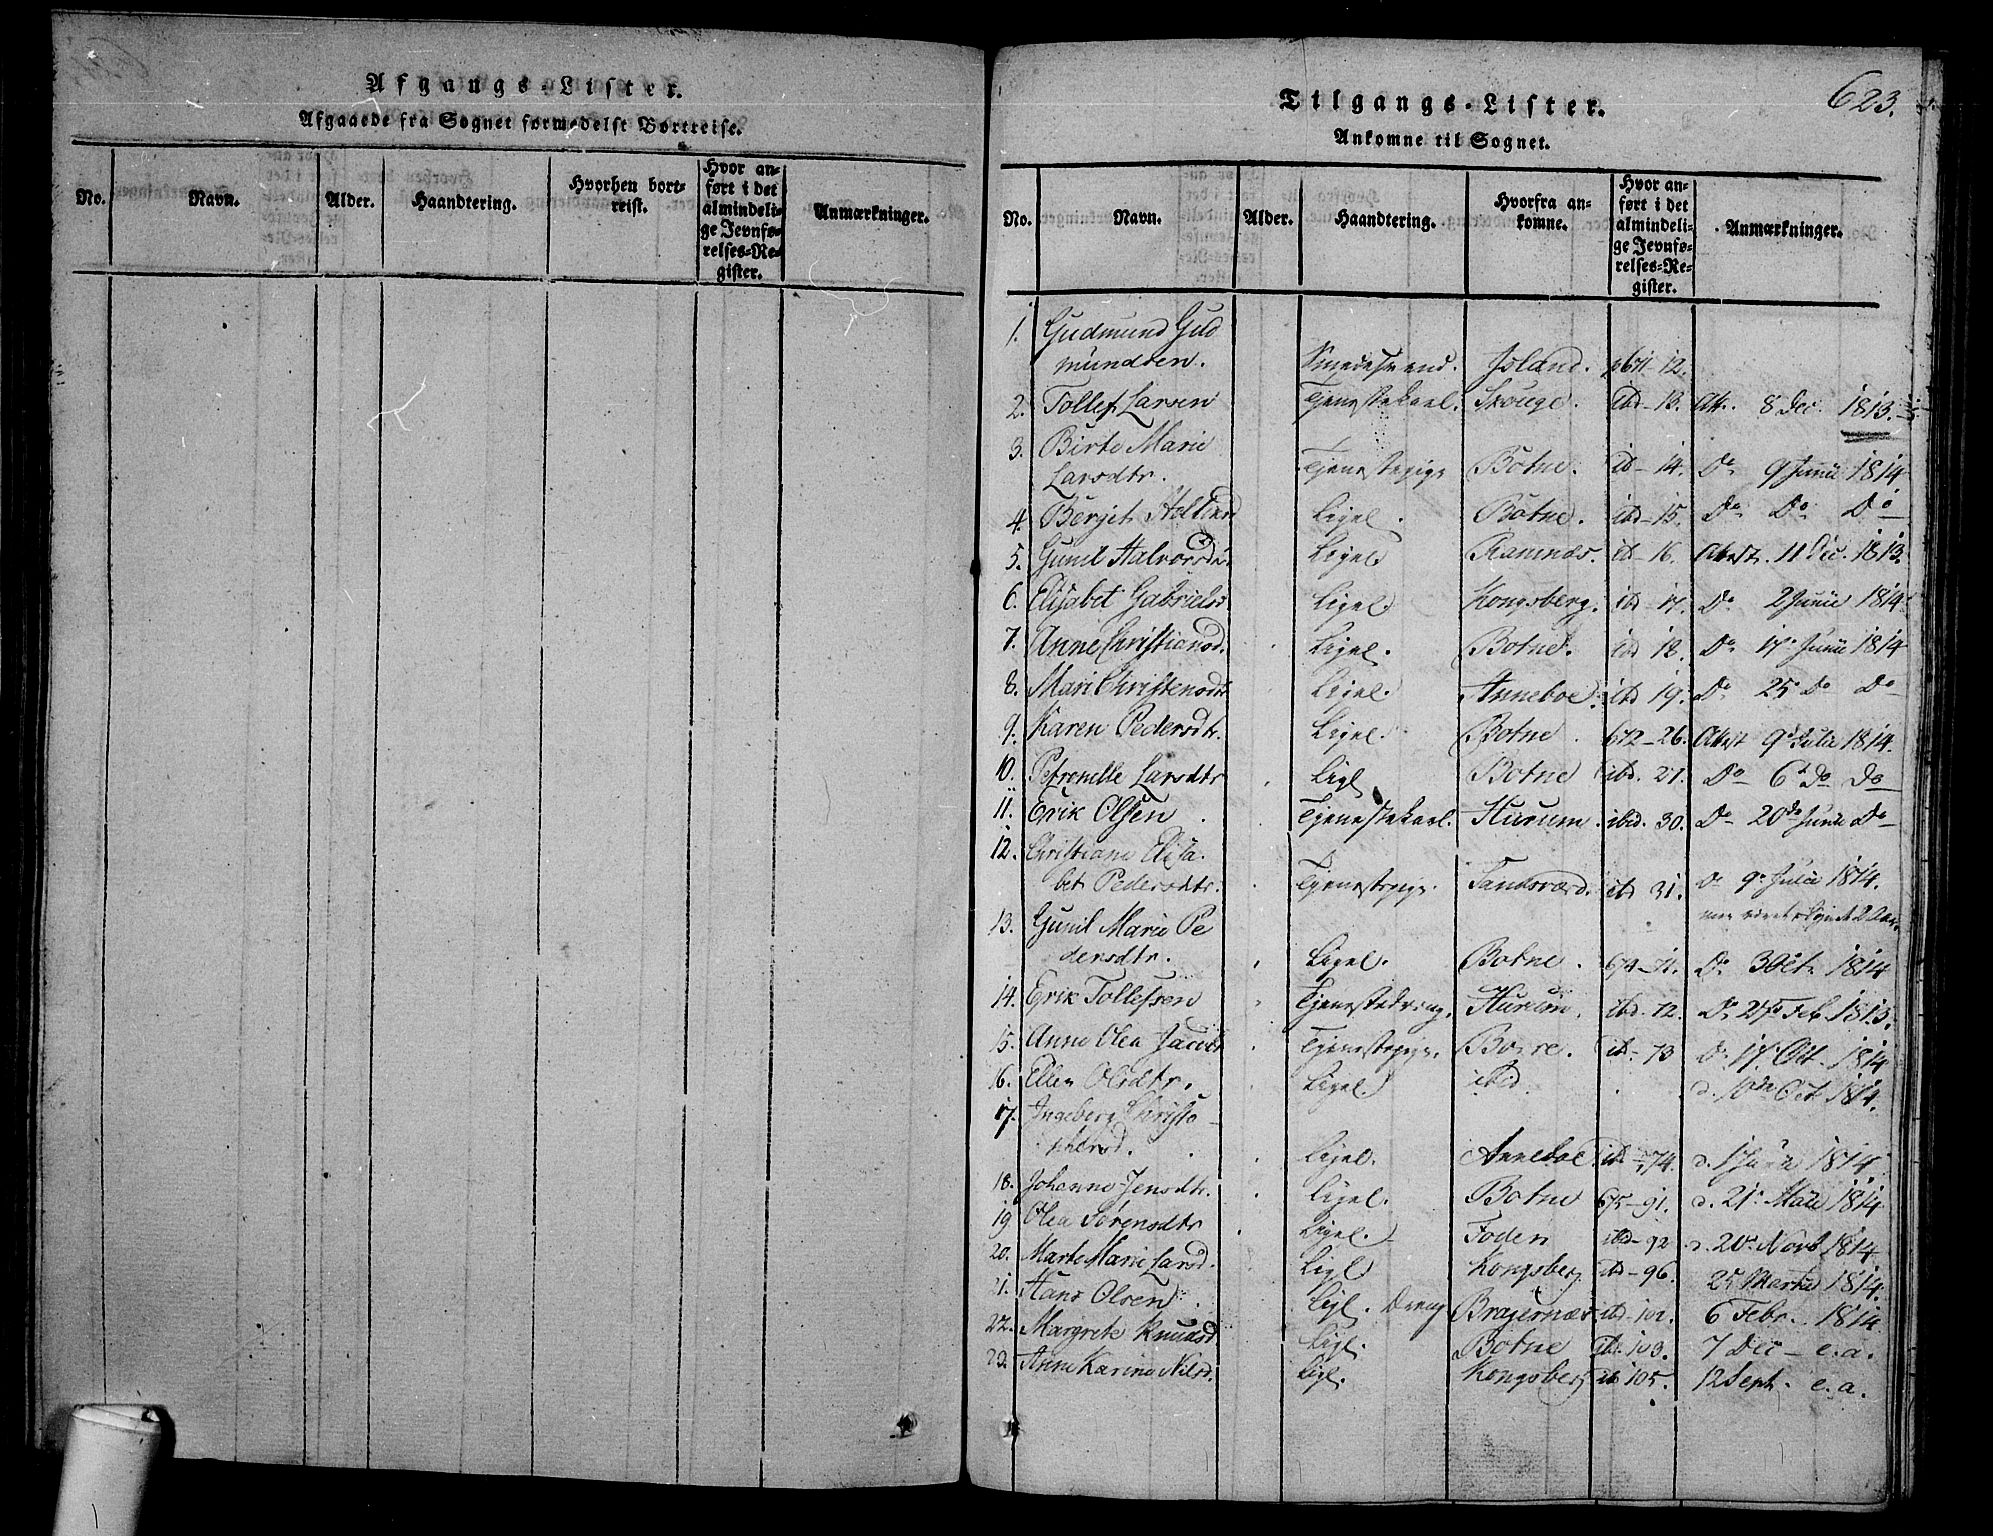 Afgangs-Lister.
Afgaaede fra Sognet formedelst Bortreise.
No. Navn. Alder. Haandtering. Hvorhen bortreist. Hvor anført i det almindelige Jevnførelses-Register. Anmærkninger.
623.
Tilgangs-Lister.
Ankomne til Sognet.
No. Navn. Alder. Haandtering. Hvorfra ankomne. Hvor anført i det almindelige Jevnførelses-Register. Anmærkninger.
1. Gudmund Gud
mundsen. Smedesvend. Island. p671-12.
2. Tollef Larsen Tjenestekarl. Skouge. ibd-13. Att. 8 Dec. 1813.
3. Birte Marie
Larsdtr. Tjenestepige Botne. ib-14. Do 9 Junii 1814
4. Berjet Botne. ibd-15. Do Do Do
5. Gunil Halvorsdr. Ligel Ramnæs. ib-16. Attest. 11 Dec. 1813.
6. Elisabet Gabrielsd Ligel. Kongsberg. ibd-17. Do 2 Junii 1814
7. Anne Christiansd. Ligel. Botne. ibd 18. Do 17 Junii 1814
8. Mari Christensdt. Ligel. Anneboe. ibd 19. Do 25 Do Do
9. Karen Pedersdtr. Ligel. Botne. 672-26. Attest 9 Julii 1814.
10. Petronelle Larsdtr Ligl Botne ibd. 27. Do 6 Do Do
11. Erik Olsen Tjenestekarl. Hurum. ibid. 30. Do 20de Junii Do
12. Christiane Elisa
bet Pedersdtr. Tjenestepige. Sandsværd. ibd 31. Do 9 Julii 1814.
13. Gunil Marie Pe
dersdtr. Ligel. Botne. 674-71. Do 3 Oct. 1814
14. Erik Tollefsen Tjenestedreng. Hurum. ibd-72. Do 27 Feb. 1813.
15. Anne Olea Jacobs Tjenestepige. ib-73 Do 17 Oct. 1814
16. Ellen Olsdtr. Ligel. ibid d. 10de Oct 1814.
17. Ingeberg Christo-
phersd. Ligel. ib-74. d. 1 1814.
18. Johanne Jensdtr. Ligel. Botne 675-91. d. 21 Maii 1814
19 Olea Sørensdtr Ligel. Foden ibd-92 d. 20 Novb 1814.
20. Marte Marie Larsd. Ligl Kongsberg ib-96. 25 Martii 1814.
21. Hans Olsen Ligl. Dreng Bragernæs ibd-102. 6 Febr. 1814
22. Margrete Knudsd Ligl. Botne ib. 103. 7 Dec - e.a.
23. Anne Karine Nilsd. Ligl. Kongsberg ib 105. 12 Sept. e.a.